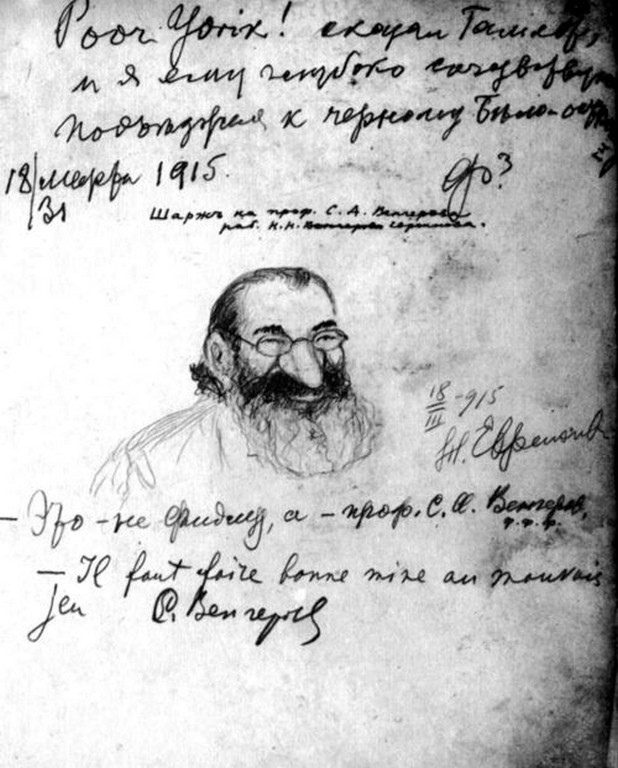 Poor Yorik! сказал Гамлет,
и я ему глубоко сочувствую
к черному
18/31 марта 1915.
Шаржъ на проф. С. А. Венгерова
раб. Н. Н.
18/III -915
Н. Евреинов
— Это - не Фидлер, а - проф. С. А. Венгеров.
— Il faut faire bonne mine au mauvais
jeu С. Венгеров